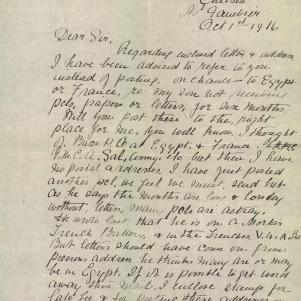 Chelsea
Mt Gambier
Oct 1st 1916
Dear Sir,
Regarding enclosed letter &
I have been advised to refer to you
instead of posting, on chance — to Egypt
or France, re my son not receiving
pcls, papers or letters, for six months
Will you post these to the right
place for me, you will know. I thought
of Base P.O at Egypt, & France.
Y.M.C.A. Sal, Army. Etc but then I have
no postal addresses. I have just posted
another pcl, we feel we must send but
as he says the months are long & lonely
without letters, many pcls are astray.
He wrote out that he is on a Mortar
Trench Battery & in the Trenches
But letters should have come on from
previous address he thinks many are or may
be in Egypt. If it is possible to get word
away this Mail. I enclose stamps for
late fee & for posting these addresses